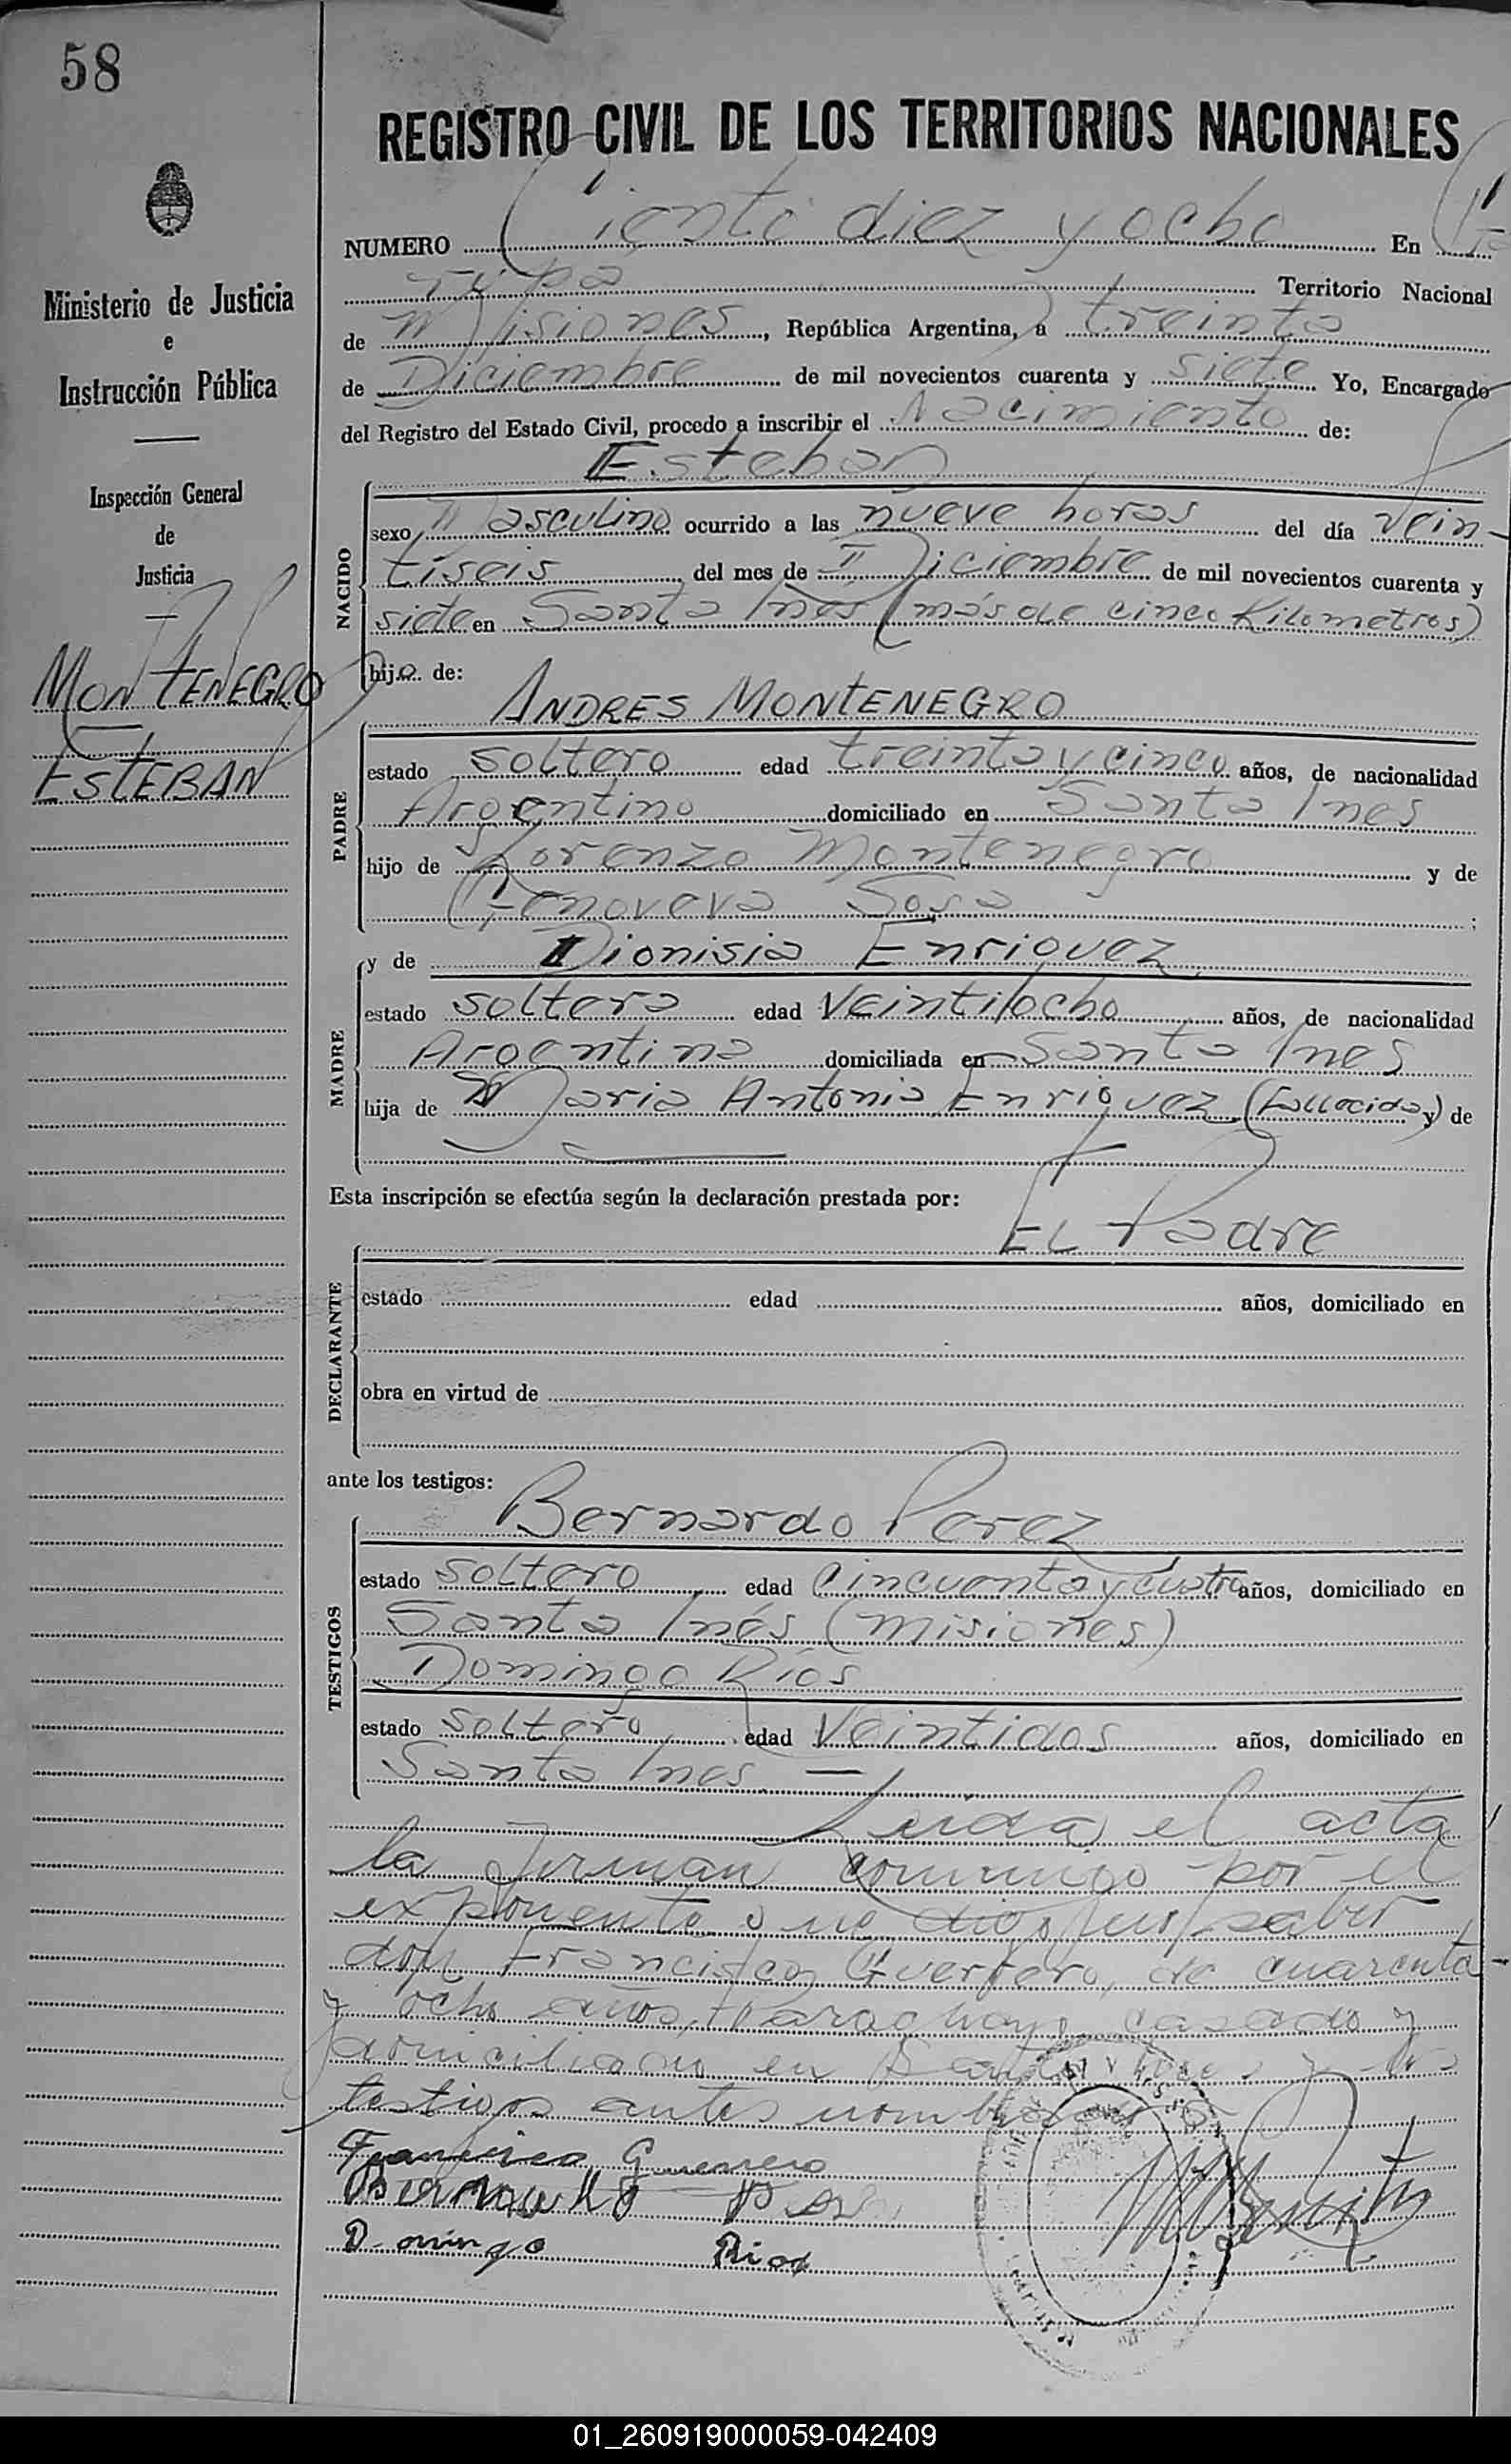 58
REGISTRO CIVIL DE LOS TERRITORIOS NACIONALES
Ministerio de Justicia
e
Instrucción Pública
Inspección General
de
Justicia
MONTENEGRO
ESTEBAN
NUMERO Ciento diez y ocho En
Territorio Nacional
de Misiones, República Argentina, a treinta
de Diciembre de mil novecientos cuarenta y siete Yo, Encargado
del Registro del Estado Civil, procedo a inscribir el Nacimiento de:
Esteban
NACIDO
sexo Masculino ocurrido a las nueve horas del día vein-
tiseis del mes de Diciembre de mil novecientos cuarenta y
siete en Santa Inés (más de cinco Kilometros)
hijo de:
ANDRES MONTENEGRO
PADRE
estado soltero edad treinta y cinco años, de nacionalidad
Argentino domiciliado en Santa Ines
hijo de Lorenzo Montenegro y de
Genoveva Sosa ;
MADRE
y de Dionisia Enriquez
estado soltera edad Veintiocho años, de nacionalidad
Argentina domiciliada en Santa Ines
hija de Maria Antonia Enriquez (Fallecida) y de
Esta inscripción se efectúa según la declaración prestada por:
EL Padre
DECLARANTE
estado edad años, domiciliado en
obra en virtud de
ante los testigos:
Bernardo Perez
TESTIGOS
estado soltero edad Cincuenta y cuatro años, domiciliado en
Santa Inés (Misiones)
Domingo Ríos
estado soltero edad Veintidos años, domiciliado en
Santa Ines
Leida el acta
la firman conmigo por el
exponente que dijo saber
don Francisco Guerrero, de cuarenta
y ocho años, Paraguayo, casado y
domiciliado en Santa Ines y los
testigos antes nombrados
Francisco Guerrero
Bernardo
Domingo Rios
01_260919000059-042409